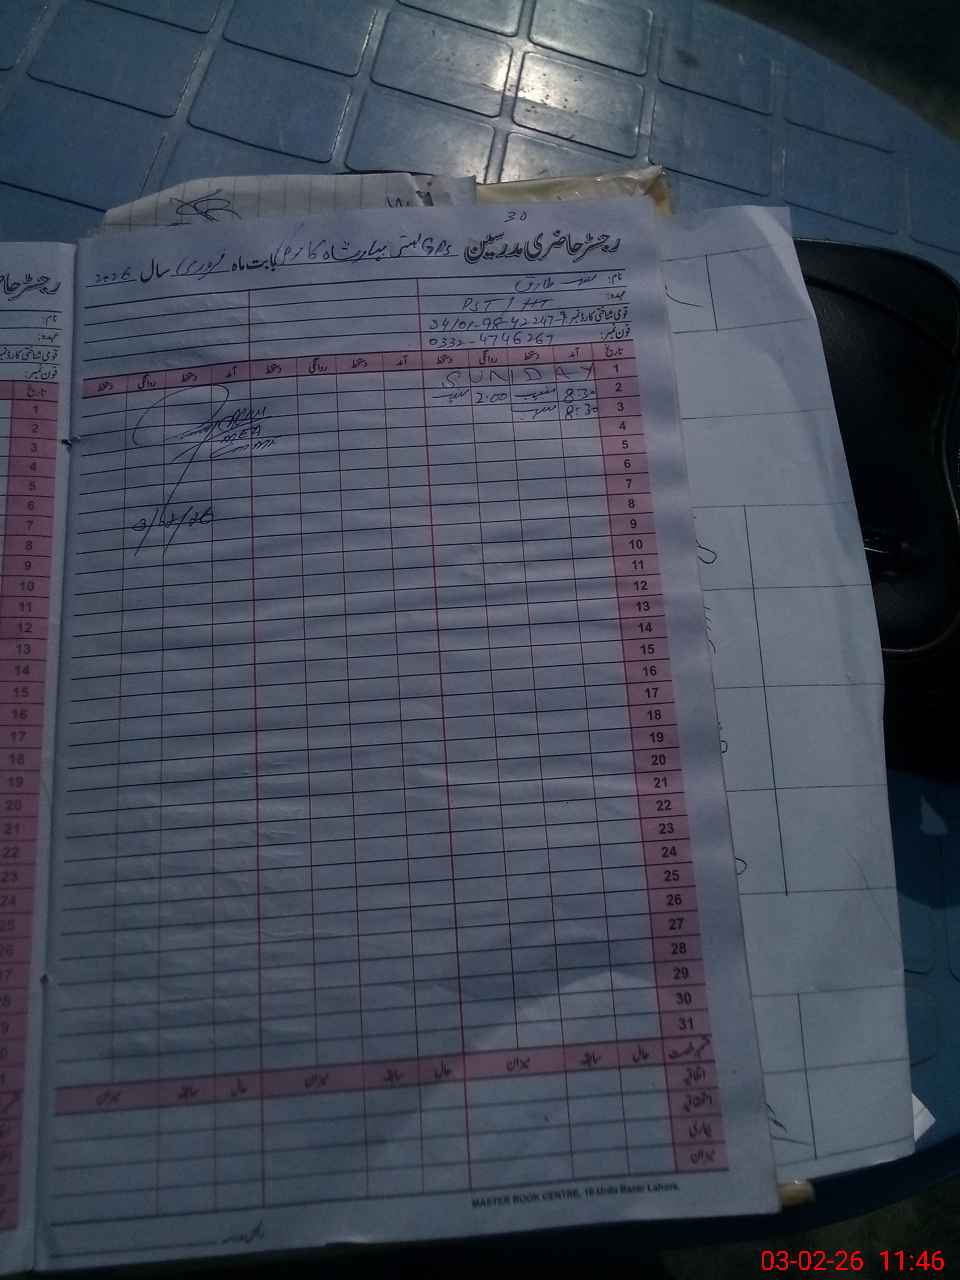 30
رجسٹر حاضری مدرسین GPS بستی بہار شاہ بابت ماہ فروری سال 2026
نام: طارق
عہدہ: PST / HT
قومی شناختی کارڈ نمبر:
فون نمبر: 0332-4746267
تاریخ آمد دستخط روانگی دستخط آمد دستخط روانگی دستخط آمد دستخط روانگی دستخط
1 SUNDAY
2 8:30 2:00
3 8:30
4
5
6
7
8
9
10
11
12
13
14
15
16
17
18
19
20
21
22
23
24
25
26
27
28
29
30
31
MEA
قسم رخصت حال سابقہ میزان حال سابقہ میزان حال سابقہ میزان
اتفاقیہ
استحقاقیہ
بیماری
میزان
MASTER BOOK CENTRE, 16 Urdu Bazar Lahore.
رجسٹر حا
نام:
عہدہ:
قومی شناختی کارڈ نمبر
فون نمبر:
تاریخ
1
2
3
4
5
6
7
8
9
10
11
12
13
14
15
16
17
18
19
20
21
22
23
24
25
26
27
28
29
30
03-02-26 11:46